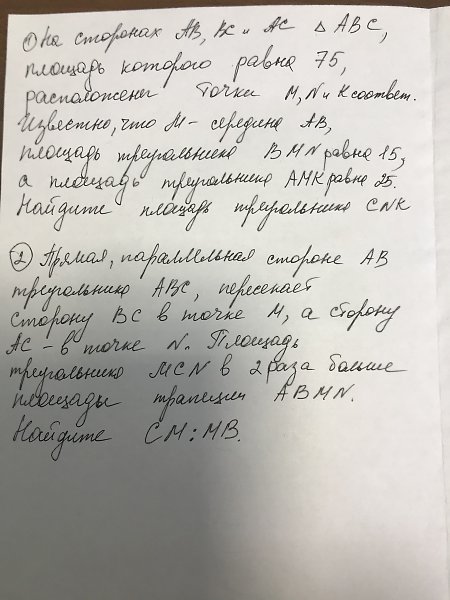 ① На сторонах АВ, ВС и АС △ АВС,
площадь которого равна 75,
расположены точки M, N и K соответ.
Известно, что М - середина АВ,
площадь треугольника BMN равна 15,
а площадь треугольника АМК равна 25.
Найдите площадь треугольника CNK
② Прямая, параллельная стороне АВ
треугольника АВС, пересекает
сторону ВС в точке М, а сторону
АС - в точке N. Площадь
треугольника MCN в 2 раза больше
площади трапеции ABMN.
Найдите СМ : МВ.